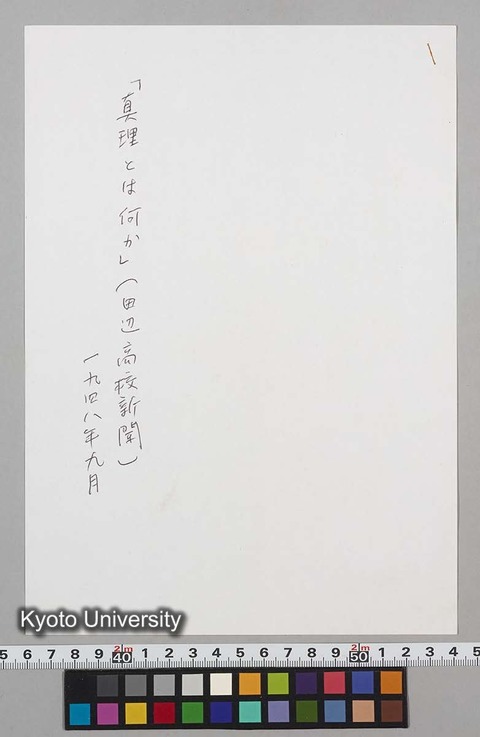 「真理とは何か」（田辺高校新聞）
一九四八年九月
Kyoto University
5 6 7 8 9 40 1 2 3 4 5 6 7 8 9 50 1 2 3 4 5
2m 2m